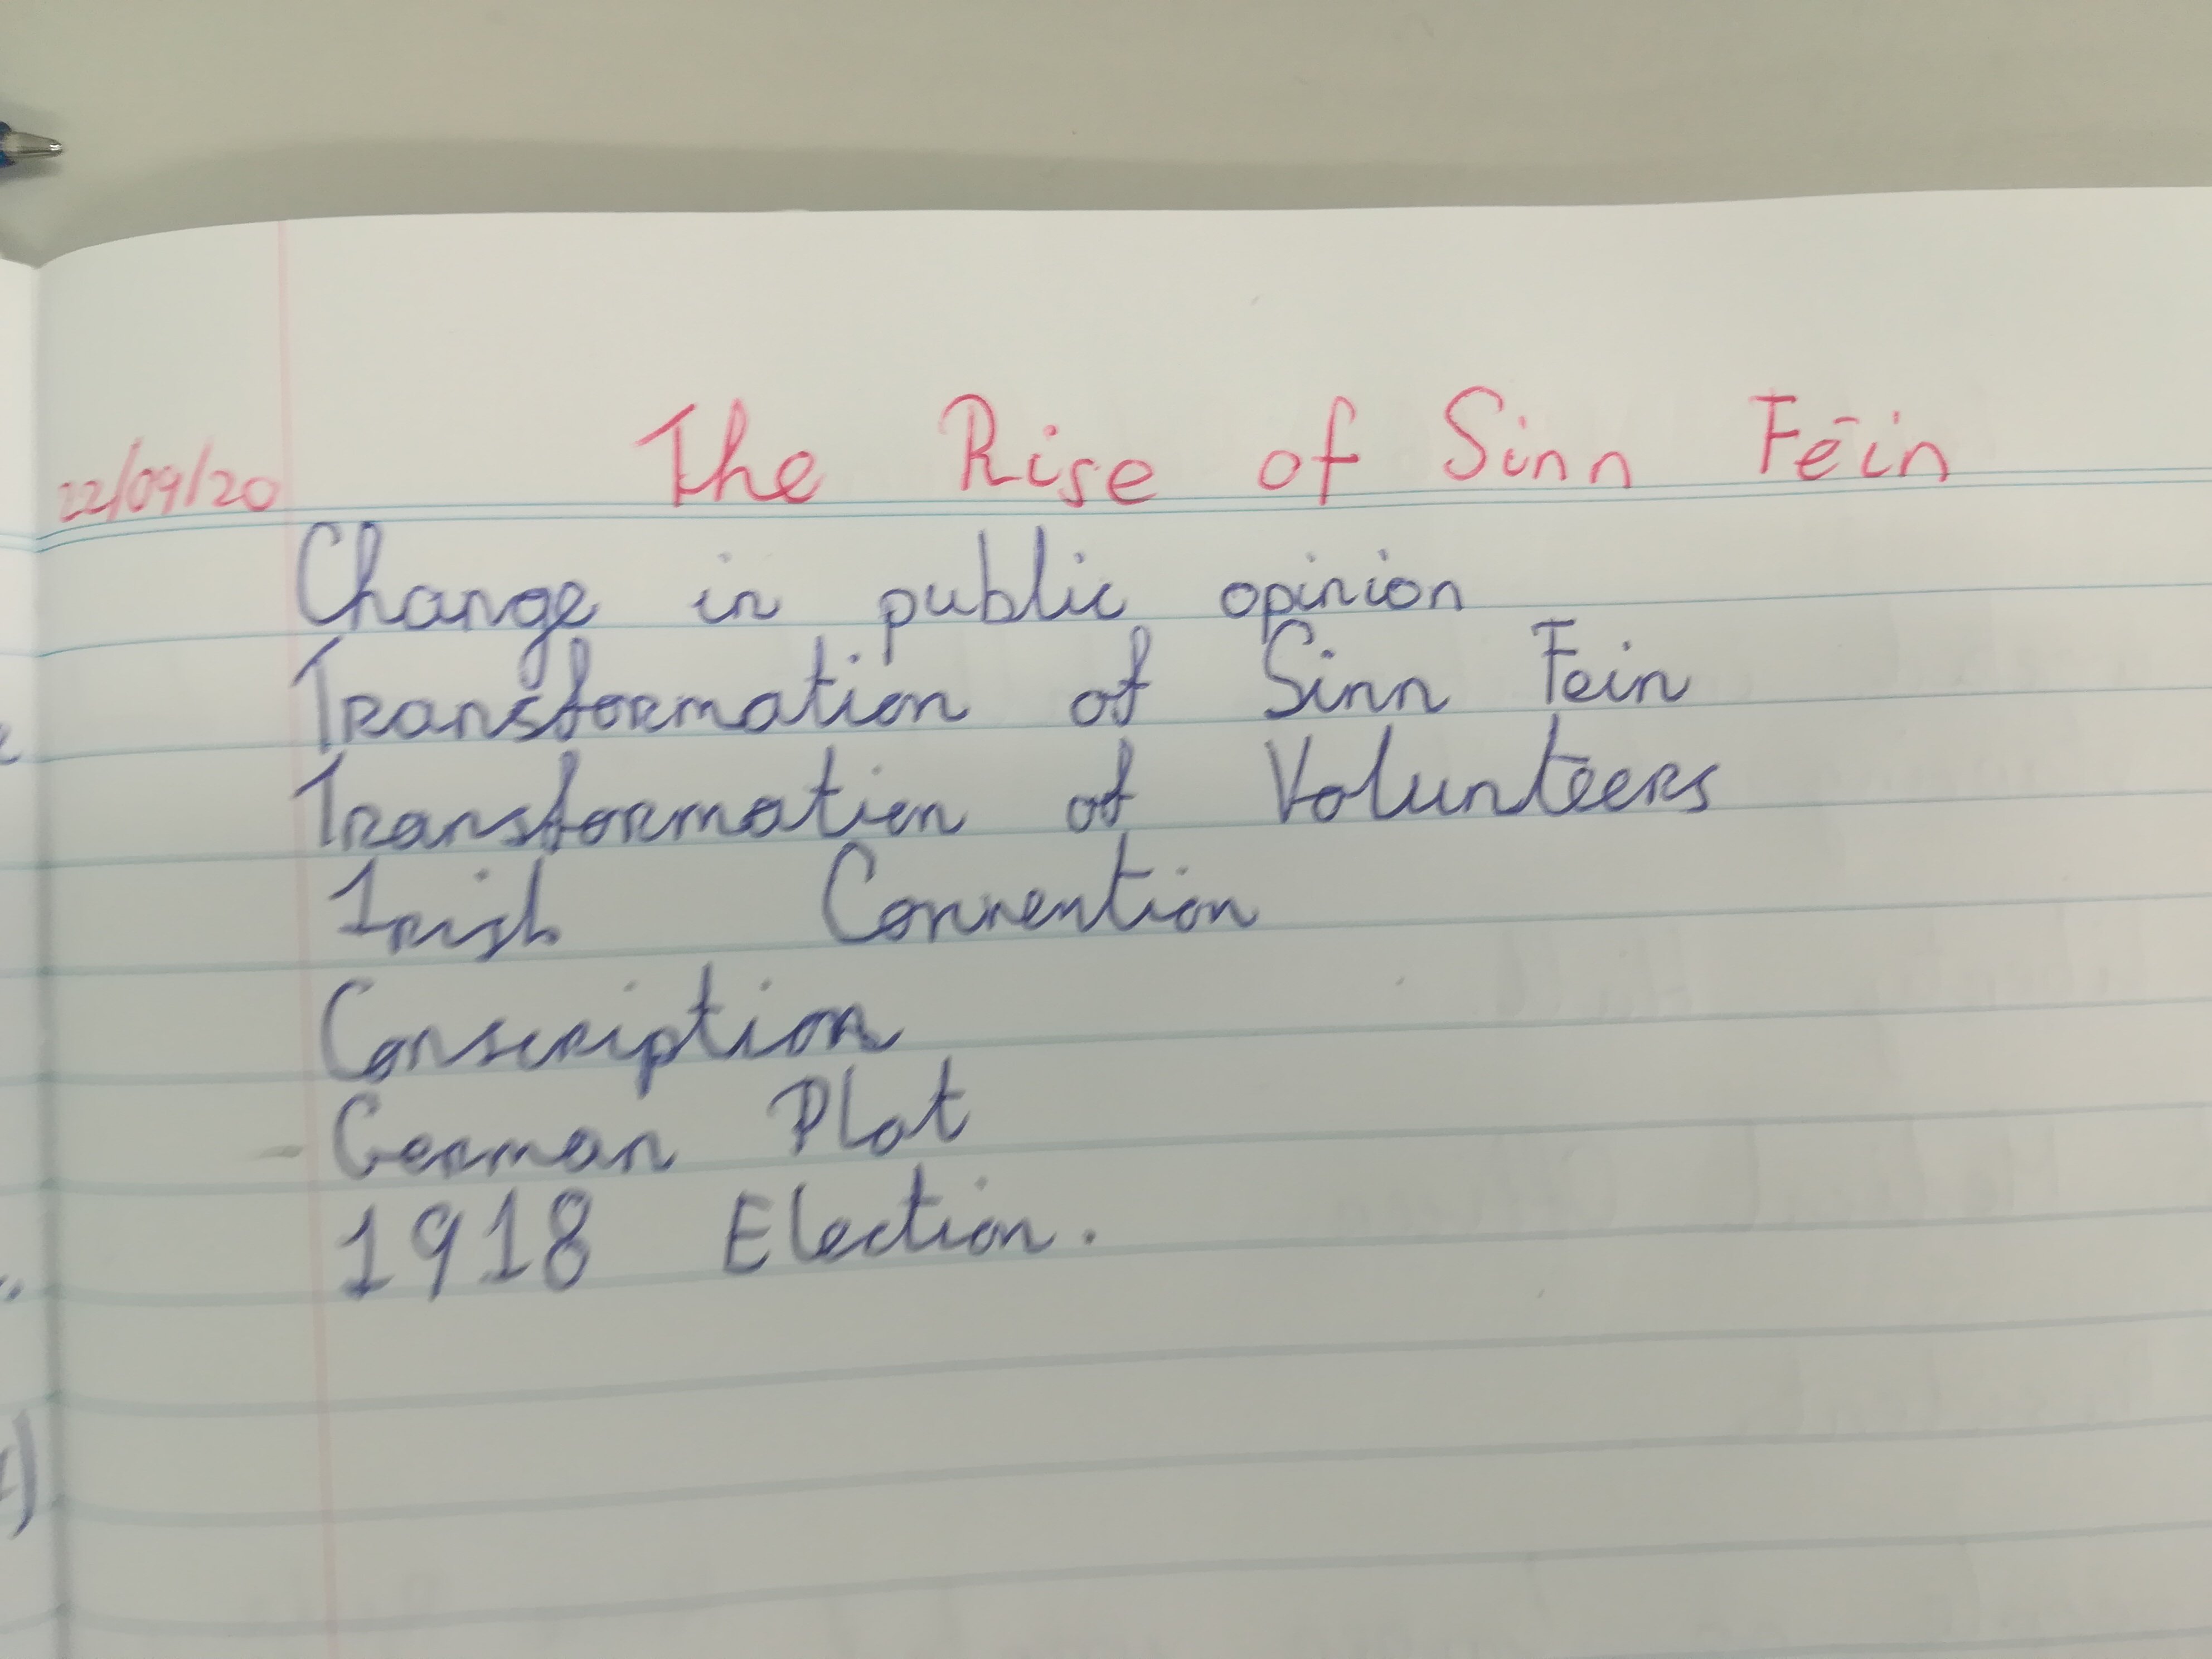 The Rise of Sinn Féin
22/09/20
Change in public opinion
Transformation of Sinn Fein
Transformation of Volunteers
Irish Convention
Conscription
- German Plot
1918 Election.